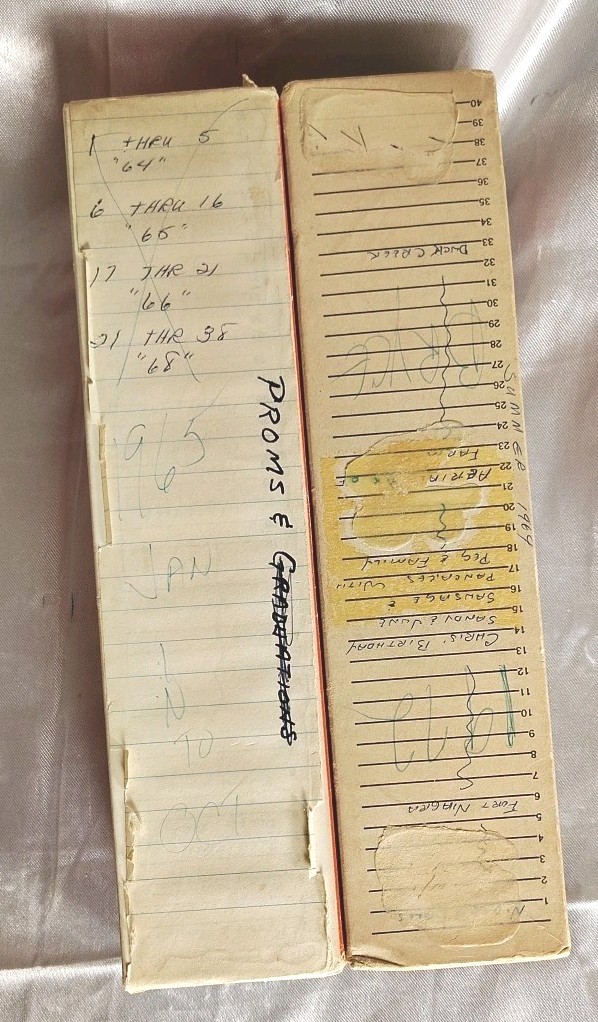 1 THRU 5
"64"
6 THRU 16
"65"
17 THR 21
"66"
21 THR 38
"68"
1965
JAN
TO
OCT
PROMS & GRADUATIONS
SUMMER 1969
1
2
3
4
5
FORT NIAGRA
6
7
8
9
10
11
12
13
CHRIS' BIRTHDAY
14
SANDY & JUNE
15
SAUSAGE &
16
PANCAKES WITH
17
PEG & FAMILY
18
19
20
21
22
FARM
23
24
25
26
27
BRYCE
28
29
30
31
32
DUCK CREEK
33
34
35
36
37
38
39
40